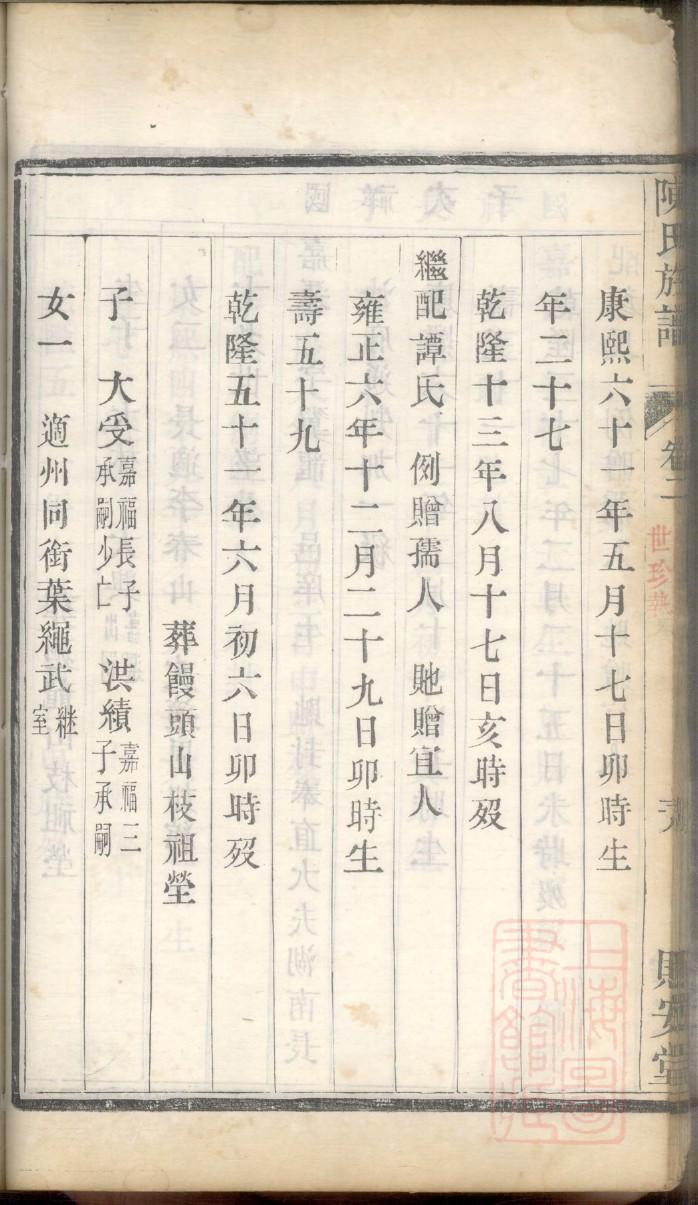 陳氏族譜
卷二
世珍
康熙六十一年五月十七日卯時生
年二十七
乾隆十三年八月十七日亥時歿
繼配譚氏 例贈孺人 貤贈宜人
雍正六年十二月二十九日卯時生
壽五十九
乾隆五十一年六月初六日卯時歿
葬饅頭山枝祖塋
子 大受 嘉福長子承嗣少亡 洪績 嘉福三子承嗣
女一 適州同銜葉繩武 繼室
上海圖書館藏